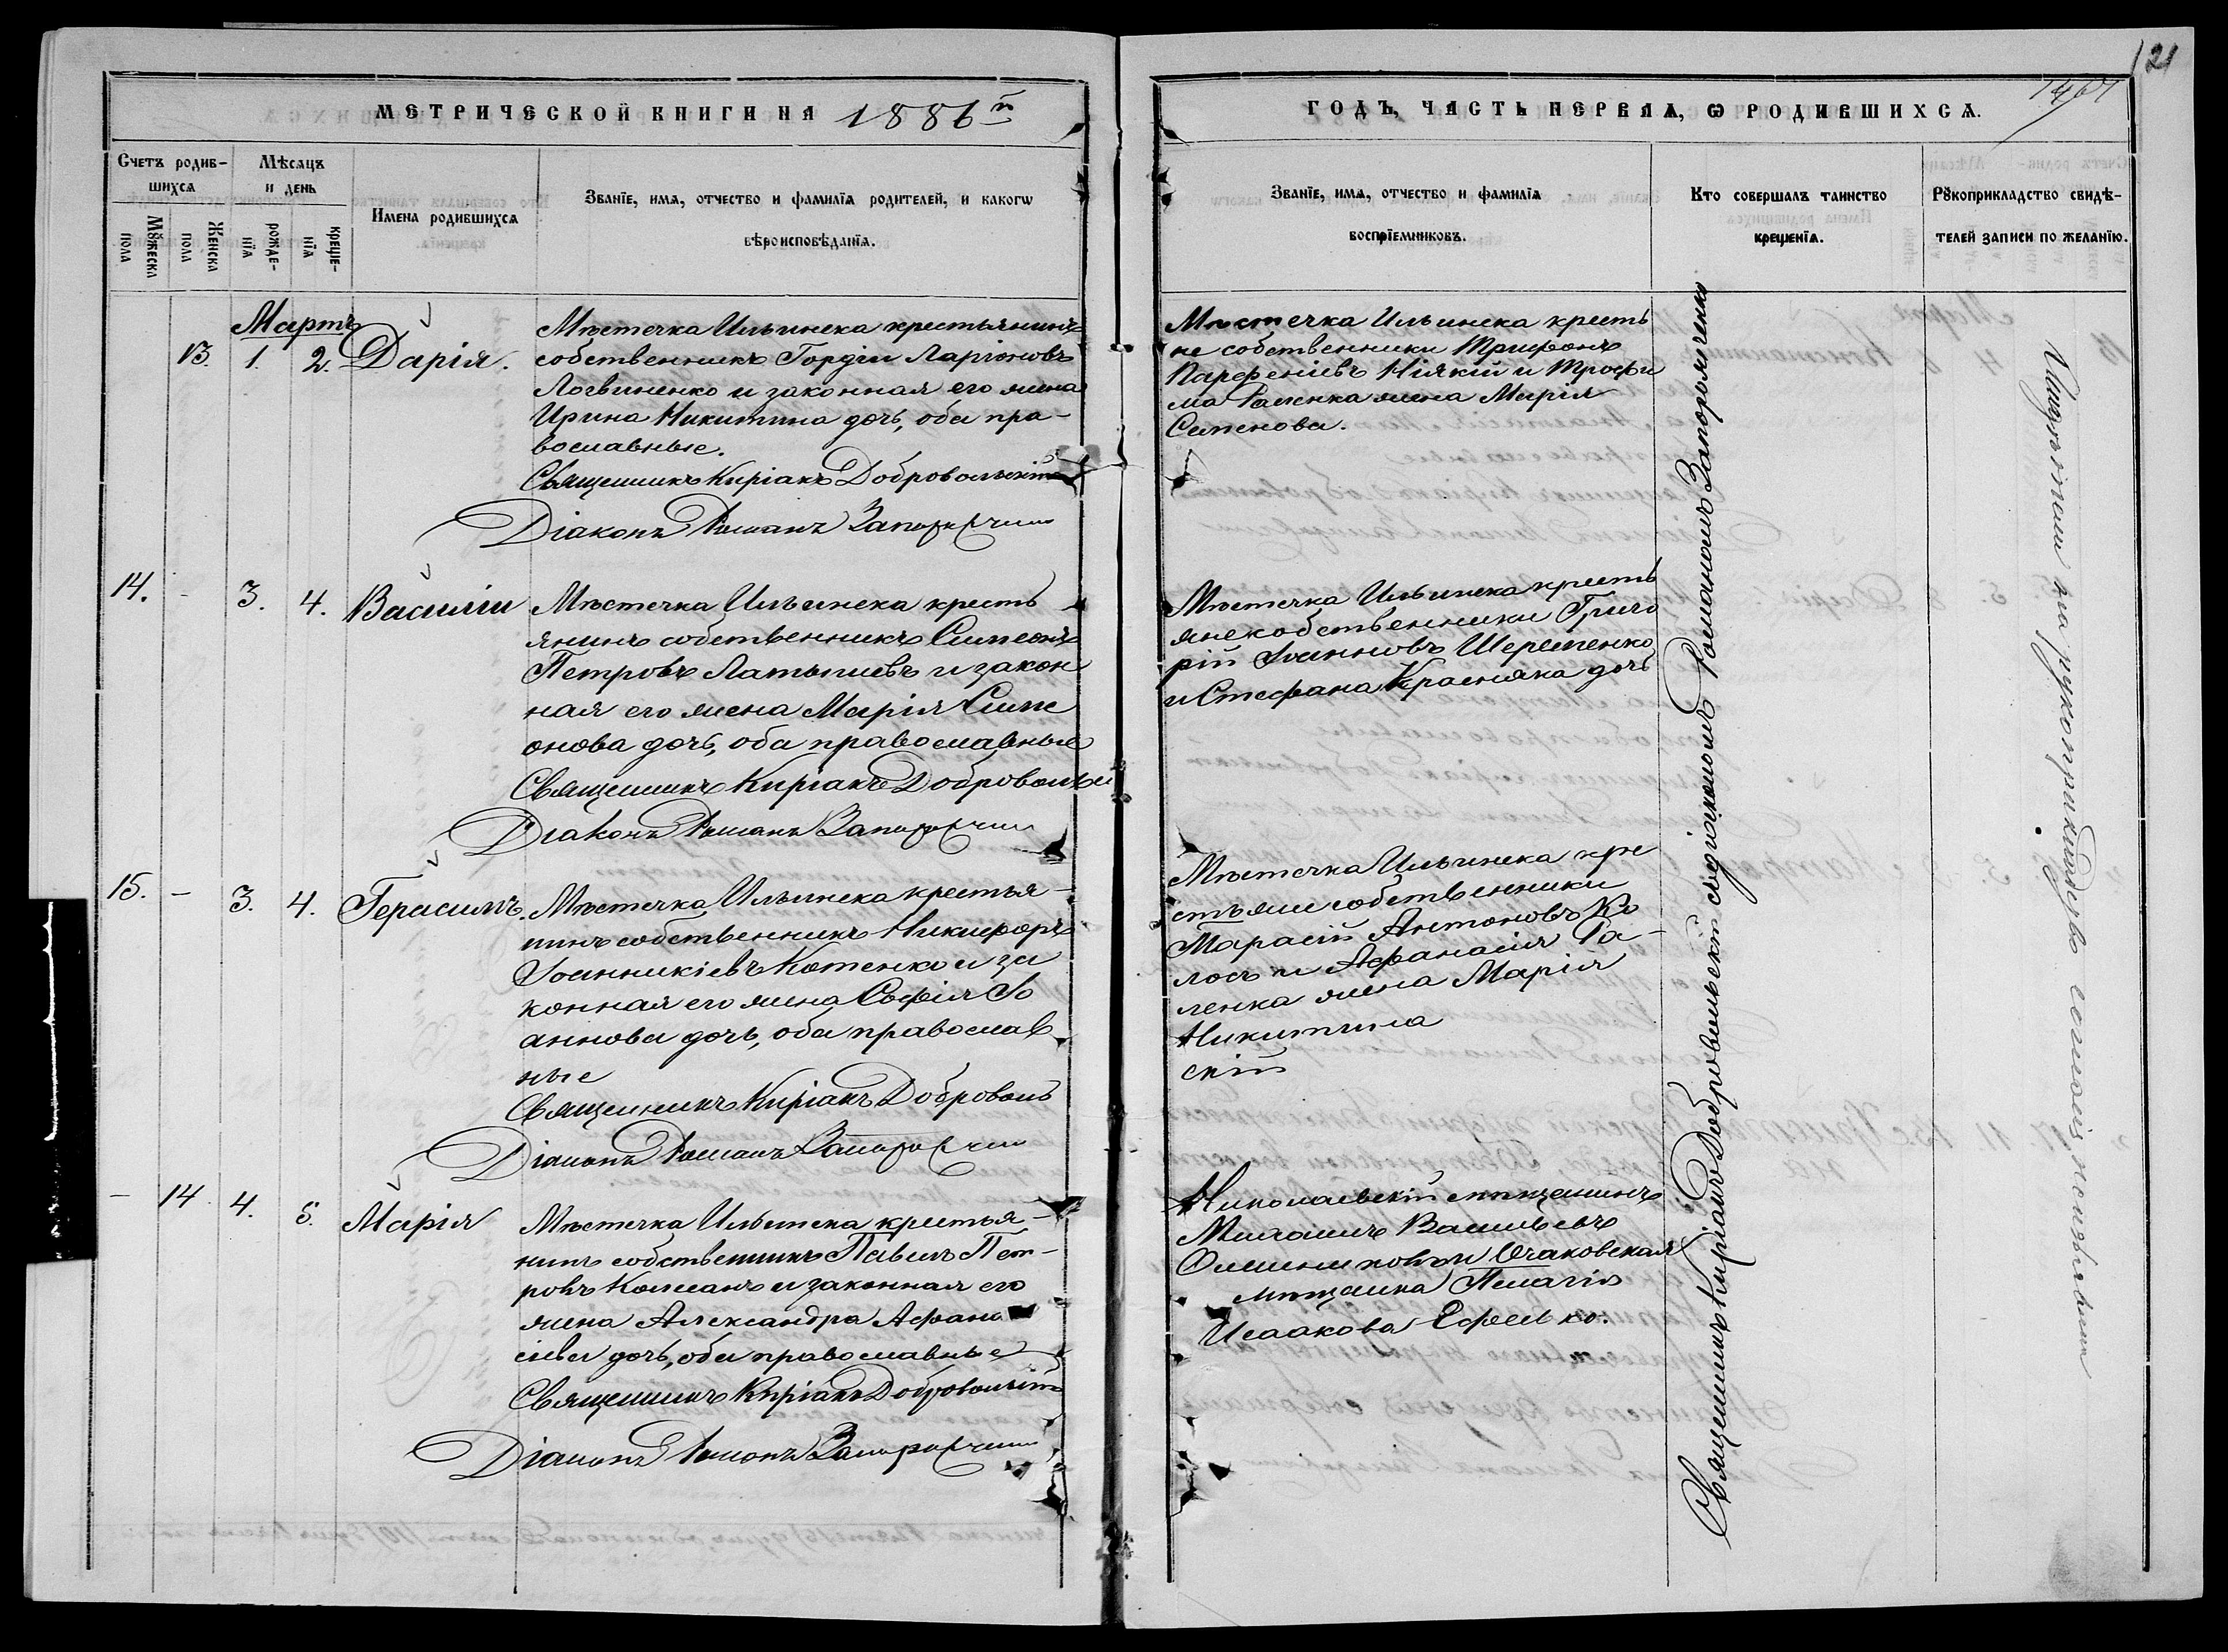 121
МЕТРИЧЕСКОЙ КНИГИ НА 1886й
ГОДЪ, ЧАСТЬ ПЕРВАЯ, Ѡ РОДИВШИХСѦ.
Счетъ родив-
шихсѧ
Мѣсяцъ
и день
Мꙋжеска
пола
Женска
пола
рожде-
нїѧ
креще-
нїѧ
Имена родившихсѧ
Званїе, имѧ, отчество и фамилїѧ родителей, и какогѡ
вѣроисповѣданїѧ.
Званїе, имѧ, отчество и фамилїѧ
воспрїемниковъ.
Кто совершалъ таинство
крещенїѧ.
Рꙋкоприкладство свидѣ-
телей записи по желанїю.
Мартъ
13. 1. 2. Дарія.
Мѣстечка Ильинска крестьянинъ
собственникъ Гордій Ларіоновъ
Логвиненко и законная его жена
Ирина Никитина дочь, оба пра-
вославные.
Священникъ Киріакъ Добровольскій
Діаконъ Романъ Запорожченко
Мѣстечка Ильинска кресть
не собственники Трифонъ
Парфеніевъ Ніякій и Трофи
ма жена Марія
Семенова.
14. - 3. 4. Василій
Мѣстечка Ильинска кресть
янинъ собственникъ Симеонъ
Петровъ Латышевъ и закон
ная его жена Марія Симе
онова дочь, оба православные
Священникъ Киріакъ Добровольскій
Діаконъ Романъ Запорожченко
Мѣстечка Ильинска кресть
яне собственники Григо
рій Іоанновъ Шереметенко
и Стефана Красняка дочь
15. - 3. 4. Герасимъ.
Мѣстечка Ильинска крестья-
нинъ собственникъ Никифоръ
Іоанникіевъ Котенко и за
конная его жена Софія Іо
аннова дочь, оба православ
ные
Священникъ Киріакъ Доброволь
Діаконъ Романъ Запорожченко
Мѣстечка Ильинска кре
стьяне собственники
Тарасій Антоновъ Ко
лосъ и Афанасія Га-
ленка жена Марія
Никитина
скій
- 14. 4. 5. Марія
Мѣстечка Ильинска крестья-
нинъ собственникъ Павелъ Пет-
ровъ и законная его
жена Александра Афана
сіева дочь, оба православные
Священникъ Киріакъ Добровольскій
Діаконъ Романъ Запорожченко
Николаевскій мѣщанинъ
Михаилъ Васильевъ
и Очаковская
мѣщанка Пелагія
Исаакова
Священникъ Киріакъ Добровольскій съ діакономъ Романомъ Запорожченко